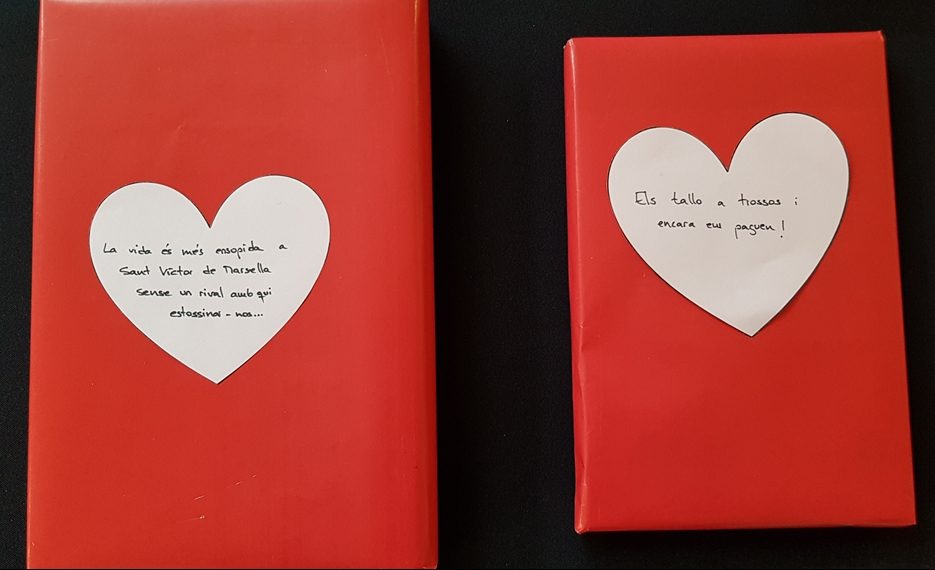 La vida és més ensopida a
Sant Víctor de Marsella
sense un rival amb qui
estossinar-nos...
Els tallo a trossos i
encara em paguen!